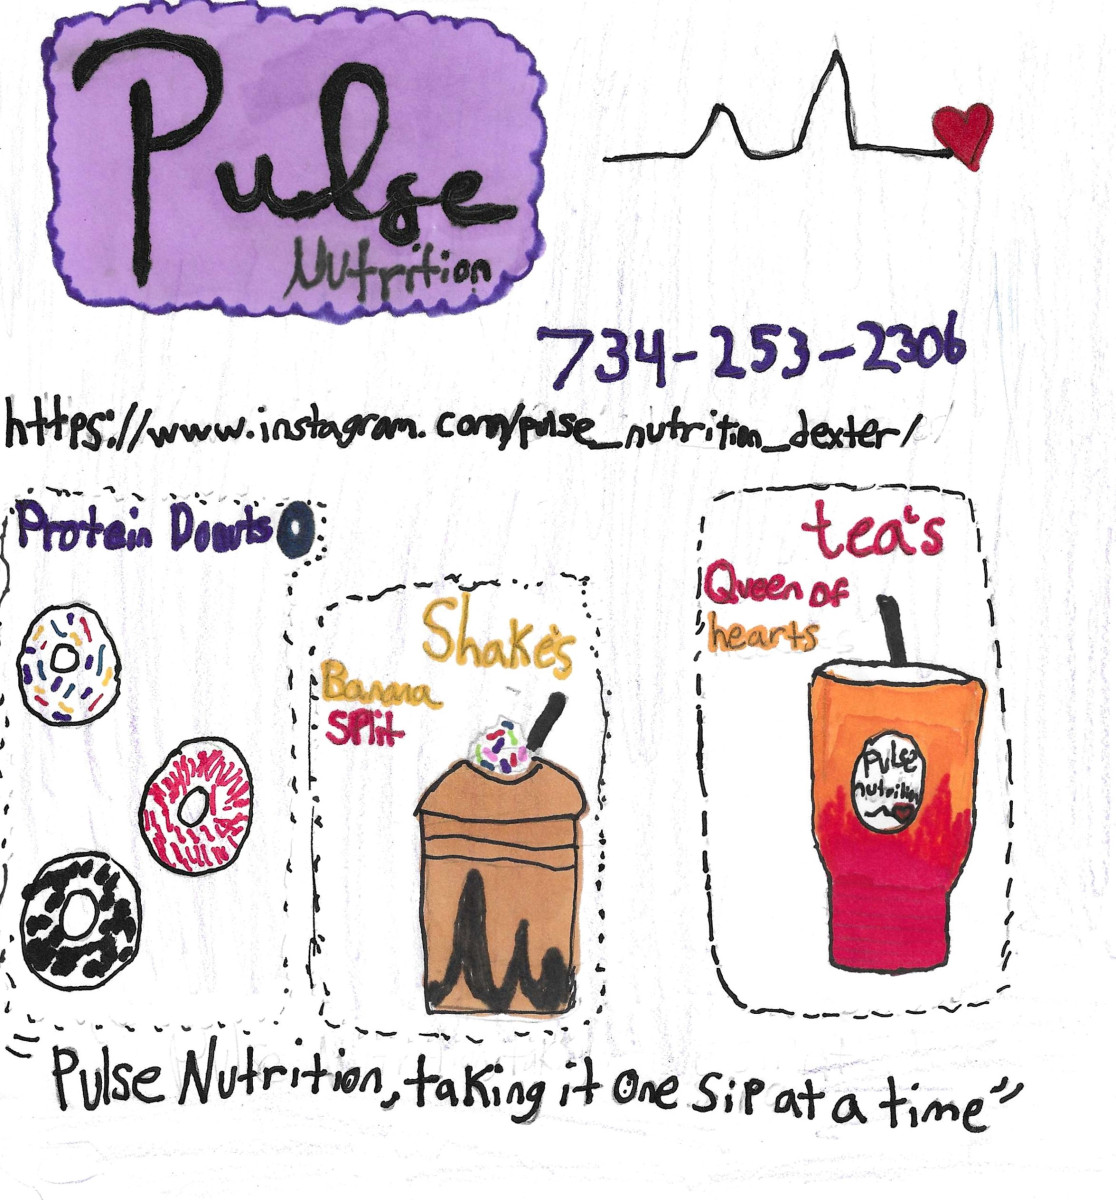 Pulse
Nutrition
734-253-2306
https://www.instagram.com/pulse_nutrition_dexter/
Protein Donuts
Shake's
Banana
Split
tea's
Queen of
hearts
Pulse
nutrition
"Pulse Nutrition, taking it One Sip at a time"